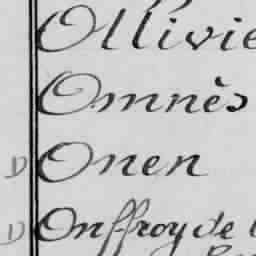 Ollivie
Omnès
D Onen
D Onffroy de